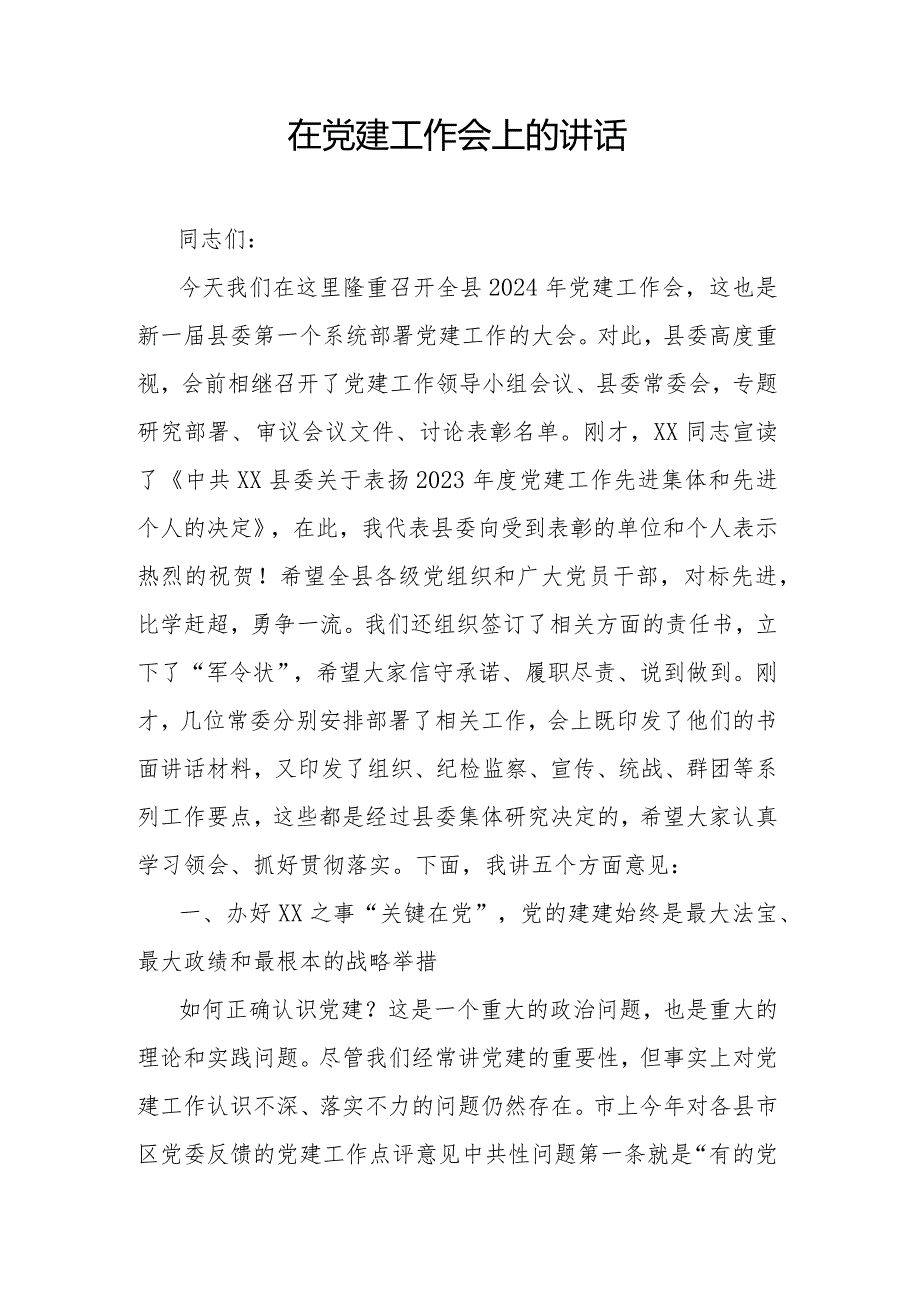 在党建工作会上的讲话
同志们：
今天我们在这里隆重召开全县 2024 年党建工作会，这也是
新一届县委第一个系统部署党建工作的大会。对此，县委高度重
视，会前相继召开了党建工作领导小组会议、县委常委会，专题
研究部署、审议会议文件、讨论表彰名单。刚才，XX 同志宣读
了《中共 XX 县委关于表扬 2023 年度党建工作先进集体和先进
个人的决定》，在此，我代表县委向受到表彰的单位和个人表示
热烈的祝贺！希望全县各级党组织和广大党员干部，对标先进，
比学赶超，勇争一流。我们还组织签订了相关方面的责任书，立
下了“军令状”，希望大家信守承诺、履职尽责、说到做到。刚
才，几位常委分别安排部署了相关工作，会上既印发了他们的书
面讲话材料，又印发了组织、纪检监察、宣传、统战、群团等系
列工作要点，这些都是经过县委集体研究决定的，希望大家认真
学习领会、抓好贯彻落实。下面，我讲五个方面意见：
一、办好 XX 之事“关键在党”，党的建建始终是最大法宝、
最大政绩和最根本的战略举措
如何正确认识党建？这是一个重大的政治问题，也是重大的
理论和实践问题。尽管我们经常讲党建的重要性，但事实上对党
建工作认识不深、落实不力的问题仍然存在。市上今年对各县市
区党委反馈的党建工作点评意见中共性问题第一条就是“有的党